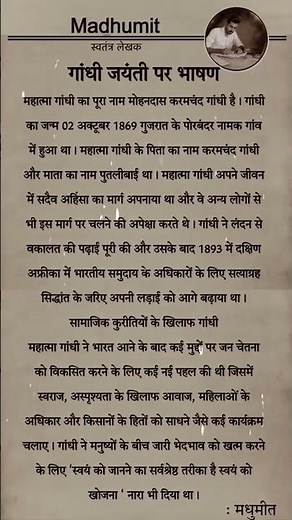 Madhumit
स्वतंत्र लेखक
गांधी जयंती पर भाषण
महात्मा गांधी का पूरा नाम मोहनदास करमचंद गांधी है। गांधी
का जन्म 02 अक्टूबर 1869 गुजरात के पोरबंदर नामक गांव
में हुआ था। महात्मा गांधी के पिता का नाम करमचंद गांधी
और माता का नाम पुतलीबाई था। महात्मा गांधी अपने जीवन
में सदैव अहिंसा का मार्ग अपनाया था और वे अन्य लोगों से
भी इस मार्ग पर चलने की अपेक्षा करते थे। गांधी ने लंदन से
वकालत की पढ़ाई पूरी की और उसके बाद 1893 में दक्षिण
अफ्रीका में भारतीय समुदाय के अधिकारों के लिए सत्याग्रह
सिद्धांत के जरिए अपनी लड़ाई को आगे बढ़ाया था।
सामाजिक कुरीतियों के खिलाफ गांधी
महात्मा गांधी ने भारत आने के बाद कई मुद्दों पर जन चेतना
को विकसित करने के लिए कई नई पहल की थी जिसमें
स्वराज, अस्पृश्यता के खिलाफ आवाज, महिलाओं के
अधिकार और किसानों के हितों को साधने जैसे कई कार्यक्रम
चलाए। गांधी ने मनुष्यों के बीच जारी भेदभाव को खत्म करने
के लिए ‘स्वयं को जानने का सर्वश्रेष्ठ तरीका है स्वयं को
खोजना ‘ नारा भी दिया था।
: मधुमीत